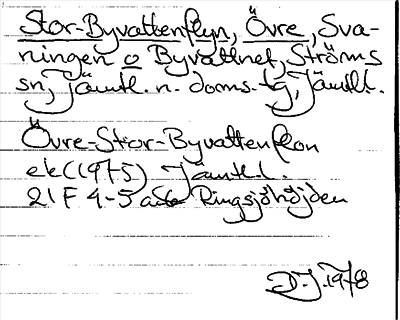 Stor-Byvattenflyn, Övre, Sva-
ningen o Byvattnet, Ströms
sn, Jämtl. n. doms-tg, Jämtl.
Övre-Stor-Byvattenflon
ek (1975) Jämtl.l.
21 F 4-5 Ringsjöhöjden
D-J. 1978